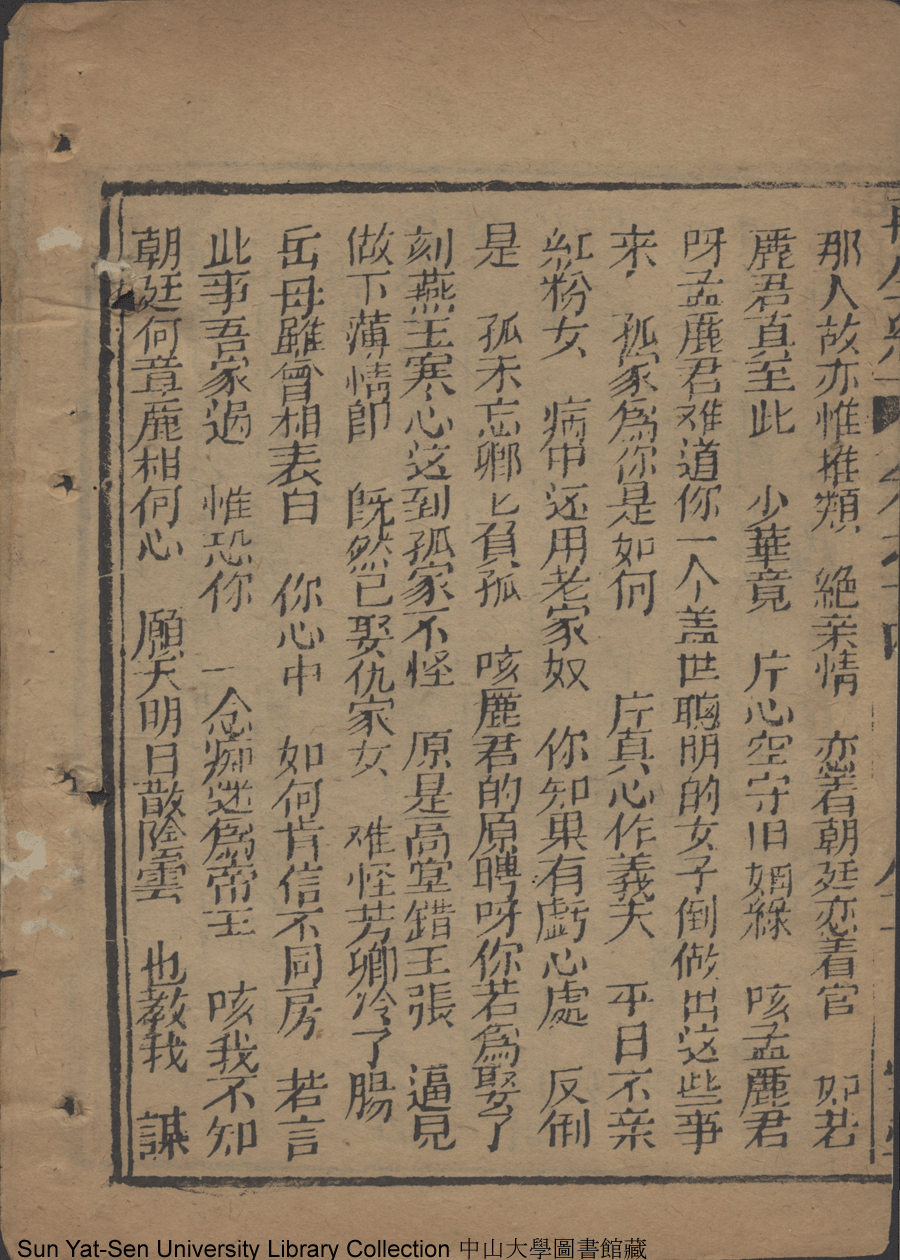 那人故亦惟推類　絕亲情　恋着朝廷恋着官　如若
麗君直至此　少華竟　片心空守旧姻緣　咳孟麗君
呀孟麗君难道你一个盖世聰明的女子倒做出这些事
来　孤家為你是如何　片真心作義夫　平日不亲
紅粉女　病中还用老家奴　你知果有虧心處　反倒
是　孤未忘卿匕負孤　咳麗君的原聘呀你若為娶了
刻燕王寒心这到孤家不怪　原是高堂錯王張　逼兒
做下薄情郎　既然已娶仇家女　难怪芳卿冷了腸
岳母雖曾相表白　你心中　如何肯信不同房　若言
此事吾家過　惟恐你　一念痴迷為帝王　咳我不知
朝廷何章麗相何心　願天明日散陰雲　也教我　諆
Sun Yat-Sen University Library Collection 中山大學圖書館藏